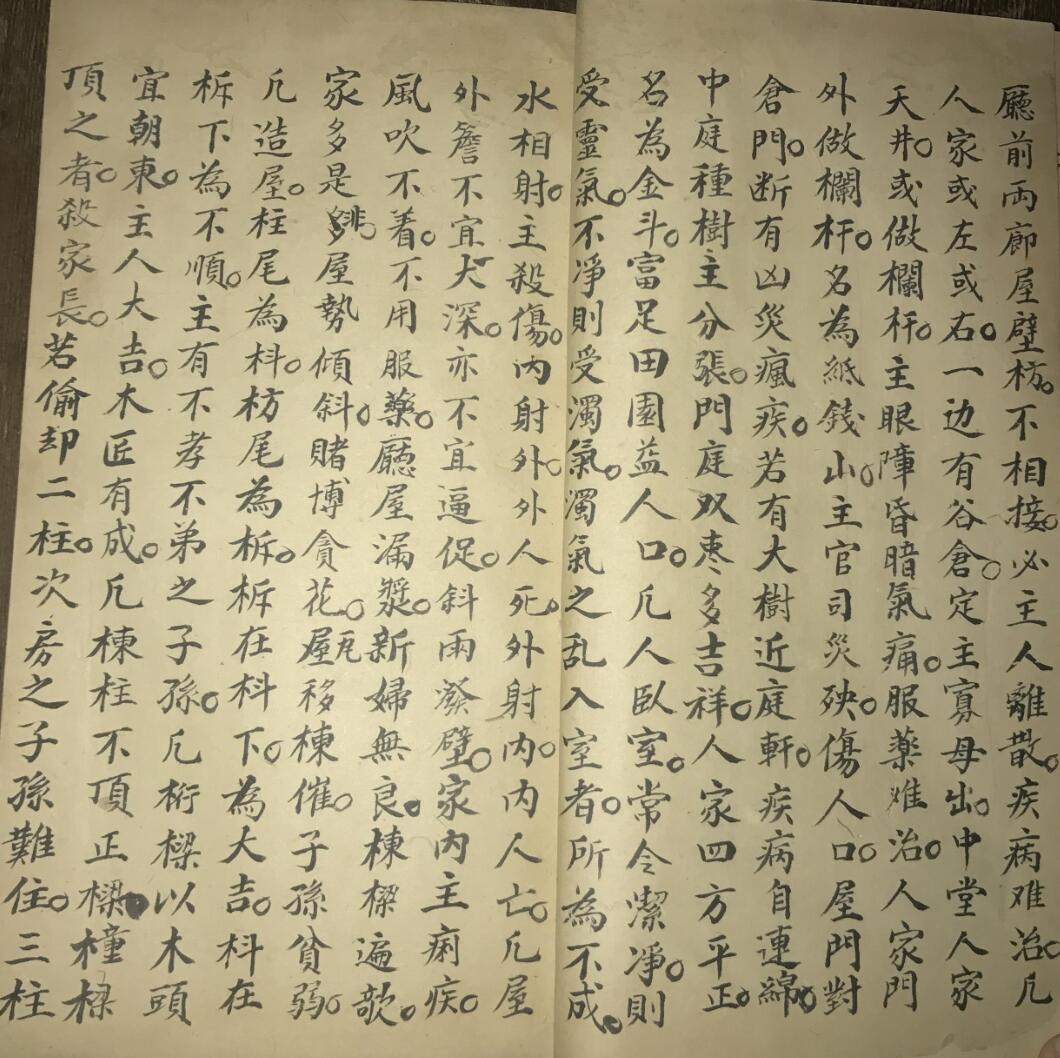 廳前両廊屋壁枋。不相接。必主人離散。疾病难治。凡
人家或左或右。一边有谷倉。定主寡母出。中堂人家
天井。或做欄杆。主眼障昏暗氣痛。服薬难治。人家門
外做欄杆。名為紙錢山。主官司災殃。傷人口。屋門對
倉門。断有凶災瘋疾。若有大樹近庭軒。疾病自連綿。
中庭種樹主分張。門庭双枣多吉祥。人家四方平正。
名為金斗。富足田園益人口。凡人臥室。常令潔凈。則
受靈氣。不凈則受濁氣。濁氣之乱入室者。所為不成。
水相射。主殺傷。内射外。外人死。外射内。内人亡。凡屋
外簷不宜大深。亦不宜逼促。斜雨潑壁。家内主痢疾。
風吹不着。不用服藥。廳屋漏漿。新婦無良。棟樑遍欹。
家多是非。屋勢傾斜。賭博貪花。屋瓦移棟催。子孫貧弱。
凡造屋。柱尾為枓。枋尾為柝。柝在枓下。為大吉。枓在
柝下為不順。主有不孝不弟之子孫。凡桁樑以木頭
宜朝東。主人大吉。木匠有成。凡棟柱不頂正樑。橦樑
頂之者。殺家長。若偷却二柱。次房之子孫難住。三柱